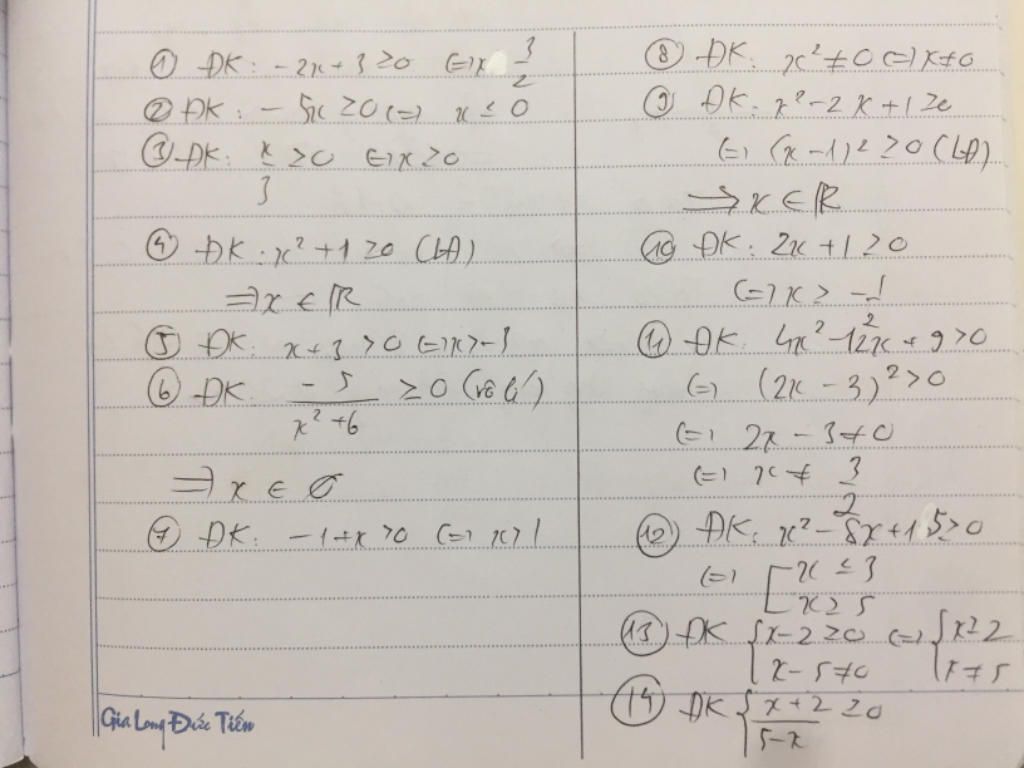 ① ĐK: -2x + 3 ≥ 0 (=) x 3/2
② ĐK: - 5x ≥ 0 (=) x ≤ 0
③ ĐK: x/3 ≥ 0 (=) x ≥ 0
④ ĐK: x² + 1 ≥ 0 (LĐ)
=> x ∈ ℝ
⑤ ĐK: x + 3 > 0 (=) x > -3
⑥ ĐK: -5/(x² + 6) ≥ 0 (vô lí)
=> x ∈ ∅
⑦ ĐK: -1 + x > 0 (=) x > 1
⑧ ĐK: x² ≠ 0 (=) x ≠ 0
⑨ ĐK: x² - 2x + 1 ≥ 0
(=) (x - 1)² ≥ 0 (LĐ)
=> x ∈ ℝ
⑩ ĐK: 2x + 1 ≥ 0
(=) x ≥ -1/2
⑪ ĐK: 4x² - 12x + 9 > 0
(=) (2x - 3)² > 0
(=) 2x - 3 ≠ 0
(=) x ≠ 3/2
⑫ ĐK: x² - 8x + 15 ≥ 0
(=) [ x ≤ 3
x ≥ 5
⑬ ĐK { x - 2 ≥ 0 (=) { x ≥ 2
x - 5 ≠ 0 x ≠ 5
⑭ ĐK { (x + 2)/(5 - x) ≥ 0
Gia Long Đức Tiến